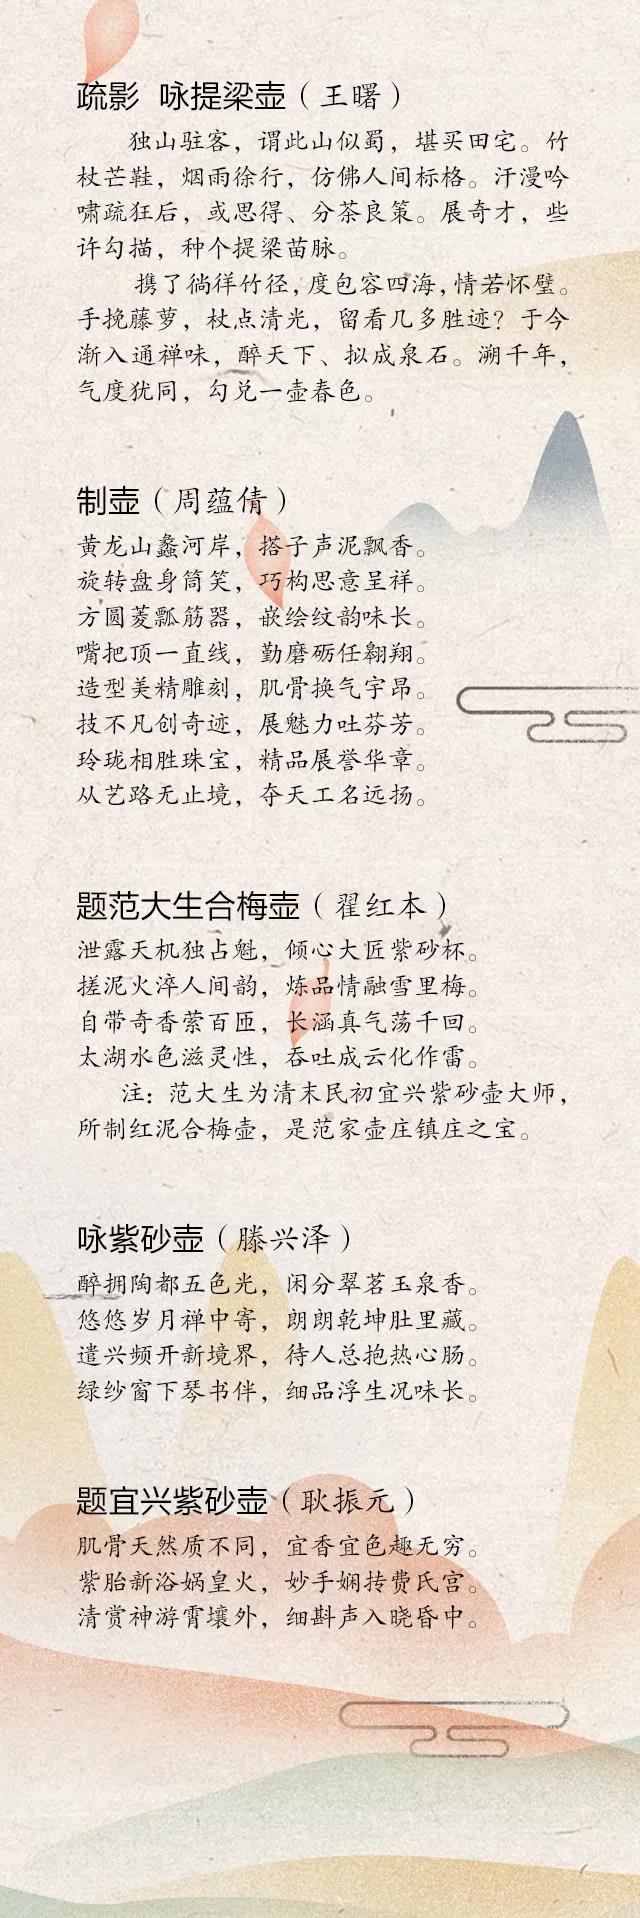 疏影  咏提梁壶（王曙）
独山驻客，谓此山似蜀，堪买田宅。竹
杖芒鞋，烟雨徐行，仿佛人间标格。汗漫吟
啸疏狂后，或思得、分茶良策。展奇才，些
许勾描，种个提梁苗脉。
携了徜徉竹径，度包容四海，情若怀璧。
手挽藤萝，杖点清光，留看几多胜迹？于今
渐入通禅味，醉天下、拟成泉石。溯千年，
气度犹同，勾兑一壶春色。
制壶（周蕴倩）
黄龙山蠡河岸，搭子声泥飘香。
旋转盘身筒笑，巧构思意呈祥。
方圆菱瓢筋器，嵌绘纹韵味长。
嘴把顶一直线，勤磨砺任翱翔。
造型美精雕刻，肌骨换气宇昂。
技不凡创奇迹，展魅力吐芬芳。
玲珑相胜珠宝，精品展誉华章。
从艺路无止境，夺天工名远扬。
题范大生合梅壶（翟红本）
泄露天机独占魁，倾心大匠紫砂杯。
搓泥火淬人间韵，炼品情融雪里梅。
自带奇香萦百匝，长涵真气荡千回。
太湖水色滋灵性，吞吐成云化作雷。
注：范大生为清末民初宜兴紫砂壶大师，
所制红泥合梅壶，是范家壶庄镇庄之宝。
咏紫砂壶（滕兴泽）
醉拥陶都五色光，闲分翠茗玉泉香。
悠悠岁月禅中寄，朗朗乾坤肚里藏。
遣兴频开新境界，待人总抱热心肠。
绿纱窗下琴书伴，细品浮生况味长。
题宜兴紫砂壶（耿振元）
肌骨天然质不同，宜香宜色趣无穷。
紫胎新浴娲皇火，妙手娴抟费氏宫。
清赏神游霄壤外，细斟声入晓昏中。